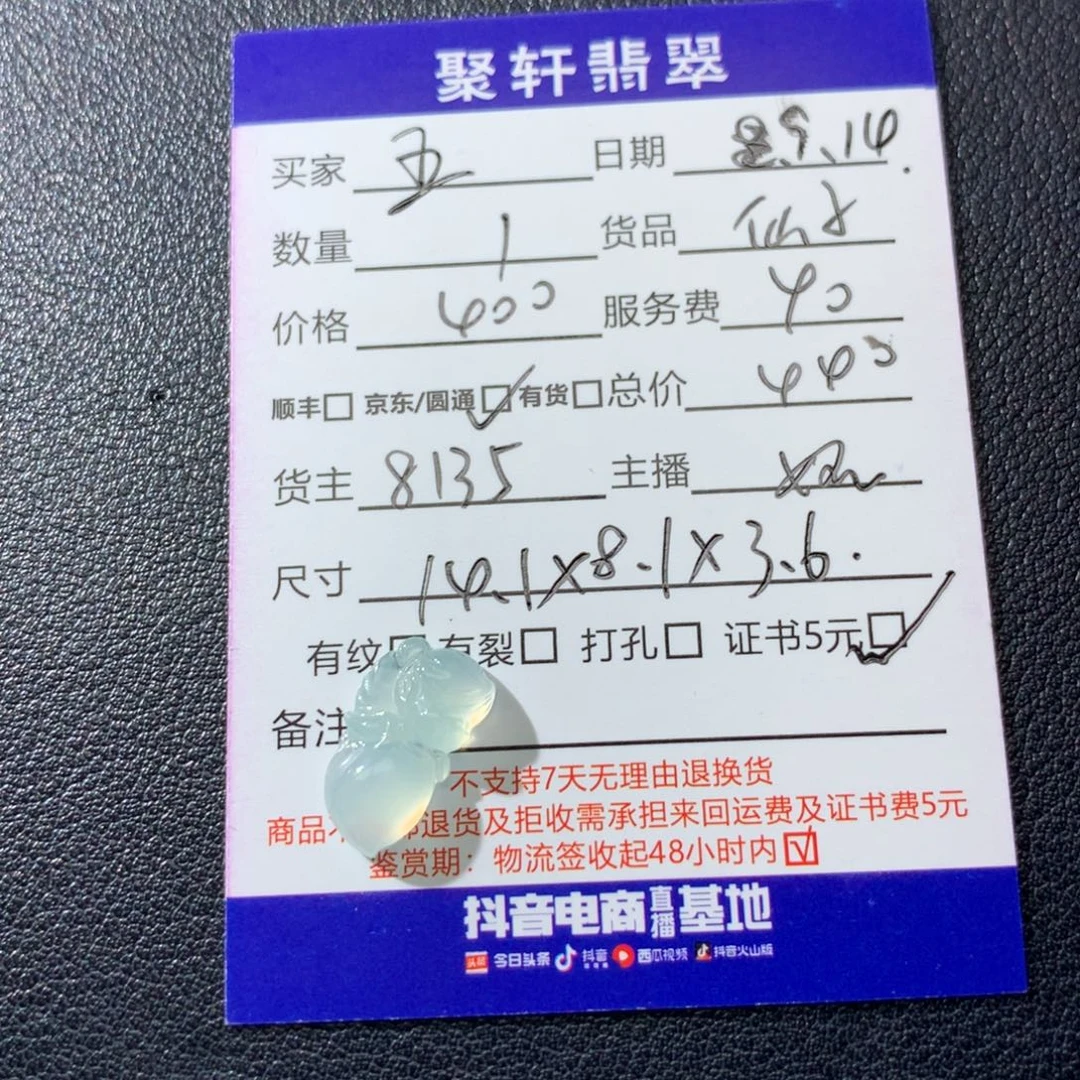 聚轩翡翠
买家 五 日期 9.14.
数量 1 货品
价格 400 服务费 40
顺丰□ 京东/圆通☑ 有货□ 总价 440
货主 8135 主播
尺寸 14.1×8.1×3.6.
有纹□ 有裂□ 打孔□ 证书5元☑
备注
不支持7天无理由退换货
商品 退货及拒收需承担来回运费及证书费5元
鉴赏期：物流签收起48小时内☑
抖音电商直播基地
头条 今日头条 抖音 西瓜视频 抖音火山版